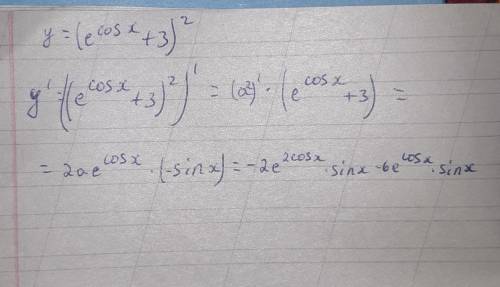 y = (e^cosx + 3)^2
y' = ((e^cosx + 3)^2)' = (a^2)' · (e^cosx + 3) =
= 2a e^cosx · (-sinx) = -2e^2cosx · sinx - 6e^cosx · sinx